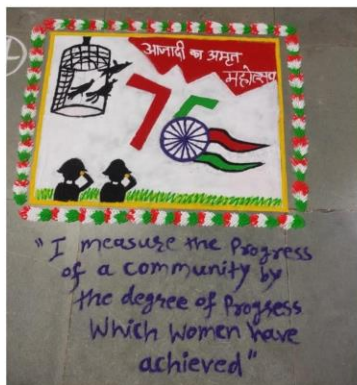 आजादी का अमृत
महोत्सव
75
"I measure the Progress
of a community by
the degree of Progress
Which Women have
achieved"